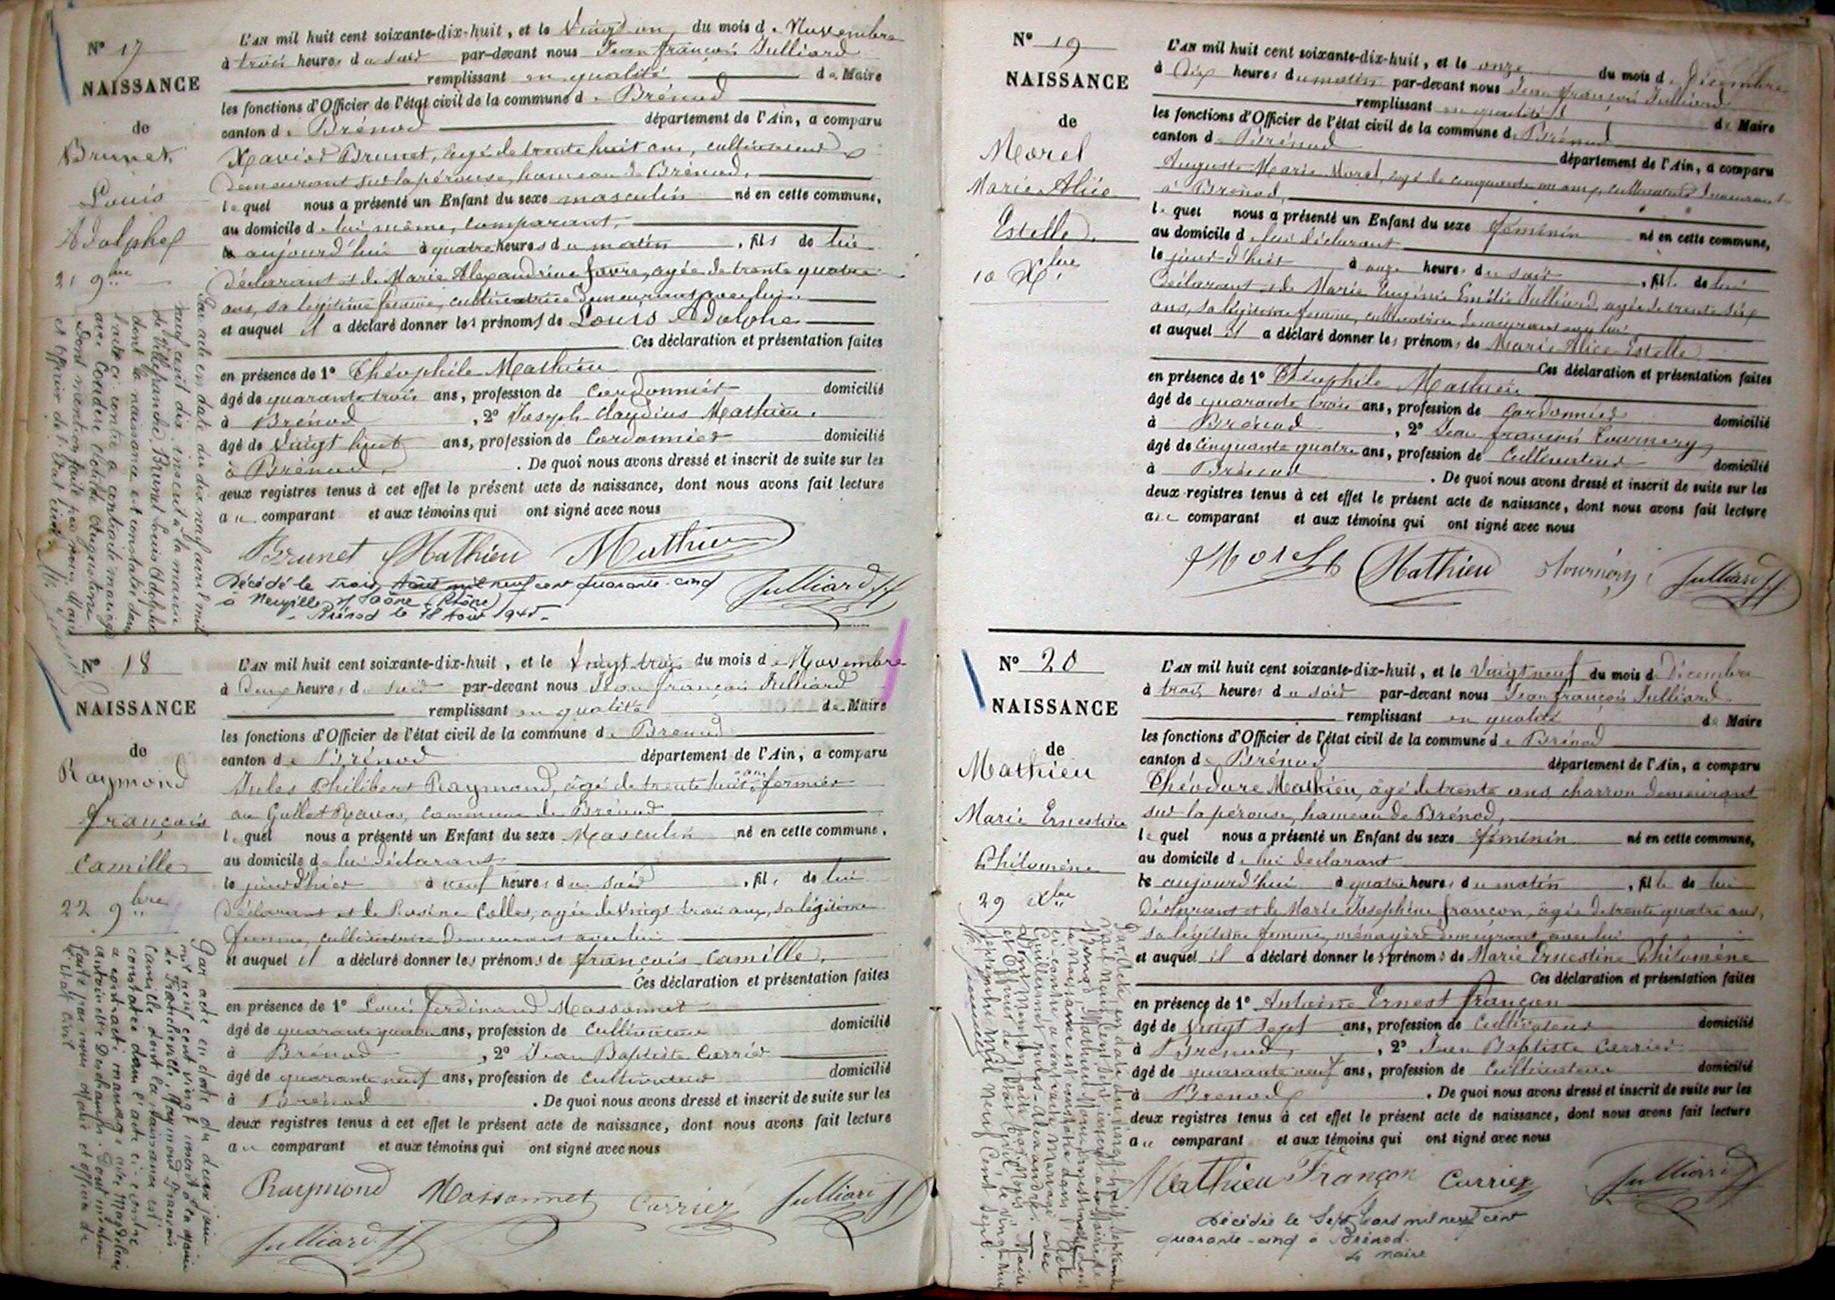 N° 17
NAISSANCE
de
Brunet
Louis
Adolphe
21 9bre
L'AN mil huit cent soixante-dix-huit, et le vingt un du mois de Novembre
à trois heures du soir par-devant nous Jean françois Julliard
remplissant en qualité de Maire
les fonctions d'Officier de l'état civil de la commune de Brénod
canton de Brénod département de l'Ain, a comparu
Xavier Brunet, âgé de trente huit ans, cultivateur
demeurant sur la pérouse, hameau de Brénod,
lequel nous a présenté un Enfant du sexe masculin né en cette commune,
au domicile de lui même, comparant,
le aujourd'hui à quatre heures du matin, fils de lui
déclarant et de Marie Alexandrine favre, agée de trente quatre
ans, sa légitime femme, cultivatrice demeurant avec lui.
et auquel il a déclaré donner les prénoms de Louis Adolphe
Ces déclaration et présentation faites
en présence de 1° Théophile Mathieu
âgé de quarante trois ans, profession de Cordonnier domicilié
à Brénod, 2° Joseph Claudius Mathieu.
âgé de vingt huit ans, profession de Cordonnier domicilié
à Brénod. De quoi nous avons dressé et inscrit de suite sur les
deux registres tenus à cet effet le présent acte de naissance, dont nous avons fait lecture
au comparant et aux témoins qui ont signé avec nous
Brunet Mathieu Mathieu
Julliard
Décédé le trois Août mil neuf cent quarante-cinq
à Neuville s/ Saône (Rhône)
Brénod le 18 Août 1945.
Par acte en date du dix neuf avril mil
neuf cent dix inscrit à la mairie
de Villefranche, Brunet Louis Adolphe
dont la naissance est constatée dans
l'acte ci-contre a contracté mariage
avec
Dont mention faite par nous Maire
et officier de l'Etat civil.
N° 18
NAISSANCE
de
Raymond
françois
Camille
22 9bre
L'AN mil huit cent soixante-dix-huit, et le vingt trois du mois de Novembre
à deux heures du soir par-devant nous Jean françois Julliard
remplissant en qualité de Maire
les fonctions d'Officier de l'état civil de la commune de Brénod
canton de Brénod département de l'Ain, a comparu
Jules Philibert Raymond, âgé de trente huit ans, fermier
au commune de Brénod
lequel nous a présenté un Enfant du sexe Masculin né en cette commune,
au domicile de lui déclarant
le jour d'hier à neuf heures du soir, fils de lui
déclarant et de Rosine Collet, agée de vingt trois ans, sa légitime
femme, cultivatrice demeurant avec lui
et auquel il a déclaré donner les prénoms de françois Camille,
Ces déclaration et présentation faites
en présence de 1° Louis Ferdinand Massonnet
âgé de quarante quatre ans, profession de Cultivateur domicilié
à Brénod, 2° Jean Baptiste Carrier
âgé de quarante neuf ans, profession de Cultivateur domicilié
à Brénod. De quoi nous avons dressé et inscrit de suite sur les
deux registres tenus à cet effet le présent acte de naissance, dont nous avons fait lecture
au comparant et aux témoins qui ont signé avec nous
Raymond Massonnet Carrier Julliard
Julliard
Par acte en date du deux juin
mil neuf cent vingt inscrit à la mairie
de Francheville, Raymond François
Camille dont la naissance est
constatée dans l'acte ci-contre
a contracté mariage avec Magdelaine
Antoinette Deschamps. Dont mention
faite par nous Maire et officier de
l'Etat civil
N° 19
NAISSANCE
de
Morel
Marie Alice
Estelle.
10 Xbre
L'AN mil huit cent soixante-dix-huit, et le onze du mois de Décembre
à dix heures du matin par-devant nous Jean françois Julliard
remplissant en qualité de Maire
les fonctions d'Officier de l'état civil de la commune de Brénod
canton de Brénod département de l'Ain, a comparu
Auguste Marie Morel, âgé de cinquante un ans, cultivateur demeurant
à Brénod,
lequel nous a présenté un Enfant du sexe féminin né en cette commune,
au domicile de lui déclarant
le jour d'hier à onze heures du soir, fille de lui
déclarant et de Marie Eugénie Emélie Julliard, agée de trente six
ans, sa légitime femme, cultivatrice demeurant avec lui
et auquel il a déclaré donner les prénoms de Marie Alice Estelle
Ces déclaration et présentation faites
en présence de 1° Théophile Mathieu
âgé de quarante trois ans, profession de Cordonnier domicilié
à Brénod, 2° Jean françois Tournery
âgé de cinquante quatre ans, profession de Cultivateur domicilié
à Brénod. De quoi nous avons dressé et inscrit de suite sur les
deux registres tenus à cet effet le présent acte de naissance, dont nous avons fait lecture
au comparant et aux témoins qui ont signé avec nous
Morel Mathieu Tournery Julliard
N° 20
NAISSANCE
de
Mathieu
Marie Ernestine
Philomène
29 Xbre
L'AN mil huit cent soixante-dix-huit, et le vingt neuf du mois de Décembre
à trois heures du soir par-devant nous Jean françois Julliard
remplissant en qualité de Maire
les fonctions d'Officier de l'état civil de la commune de Brénod
canton de Brénod département de l'Ain, a comparu
Théodore Mathieu, âgé de trente ans, charron demeurant
sur la pérouse, hameau de Brénod,
lequel nous a présenté un Enfant du sexe féminin né en cette commune,
au domicile de lui déclarant
le aujourd'hui à quatre heures du matin, fille de lui
déclarant et de Marie Joséphine françon, âgée de trente quatre ans,
sa légitime femme, ménagère demeurant avec lui
et auquel il a déclaré donner les prénoms de Marie Ernestine Philomène
Ces déclaration et présentation faites
en présence de 1° Antoine Ernest françon
âgé de vingt sept ans, profession de Cultivateur domicilié
à Brénod, 2° Jean Baptiste Carrier
âgé de quarante neuf ans, profession de Cultivateur domicilié
à Brénod. De quoi nous avons dressé et inscrit de suite sur les
deux registres tenus à cet effet le présent acte de naissance, dont nous avons fait lecture
au comparant et aux témoins qui ont signé avec nous
Mathieu Françon Carrier Julliard
Décédée le Sept Mars mil neuf cent
quarante-cinq à Brénod.
Le Maire
Par acte en date du vingt-huit septembre
mil neuf cent sept inscrit à la Mairie de
Mathieu Marie Ernestine dont
la naissance est constatée dans l'acte
ci-contre a contracté mariage avec
Jules-Alexandre.
Dont mention faite par Nous Maire
et Officier de l'Etat civil le vingt-huit
septembre mil neuf cent sept.